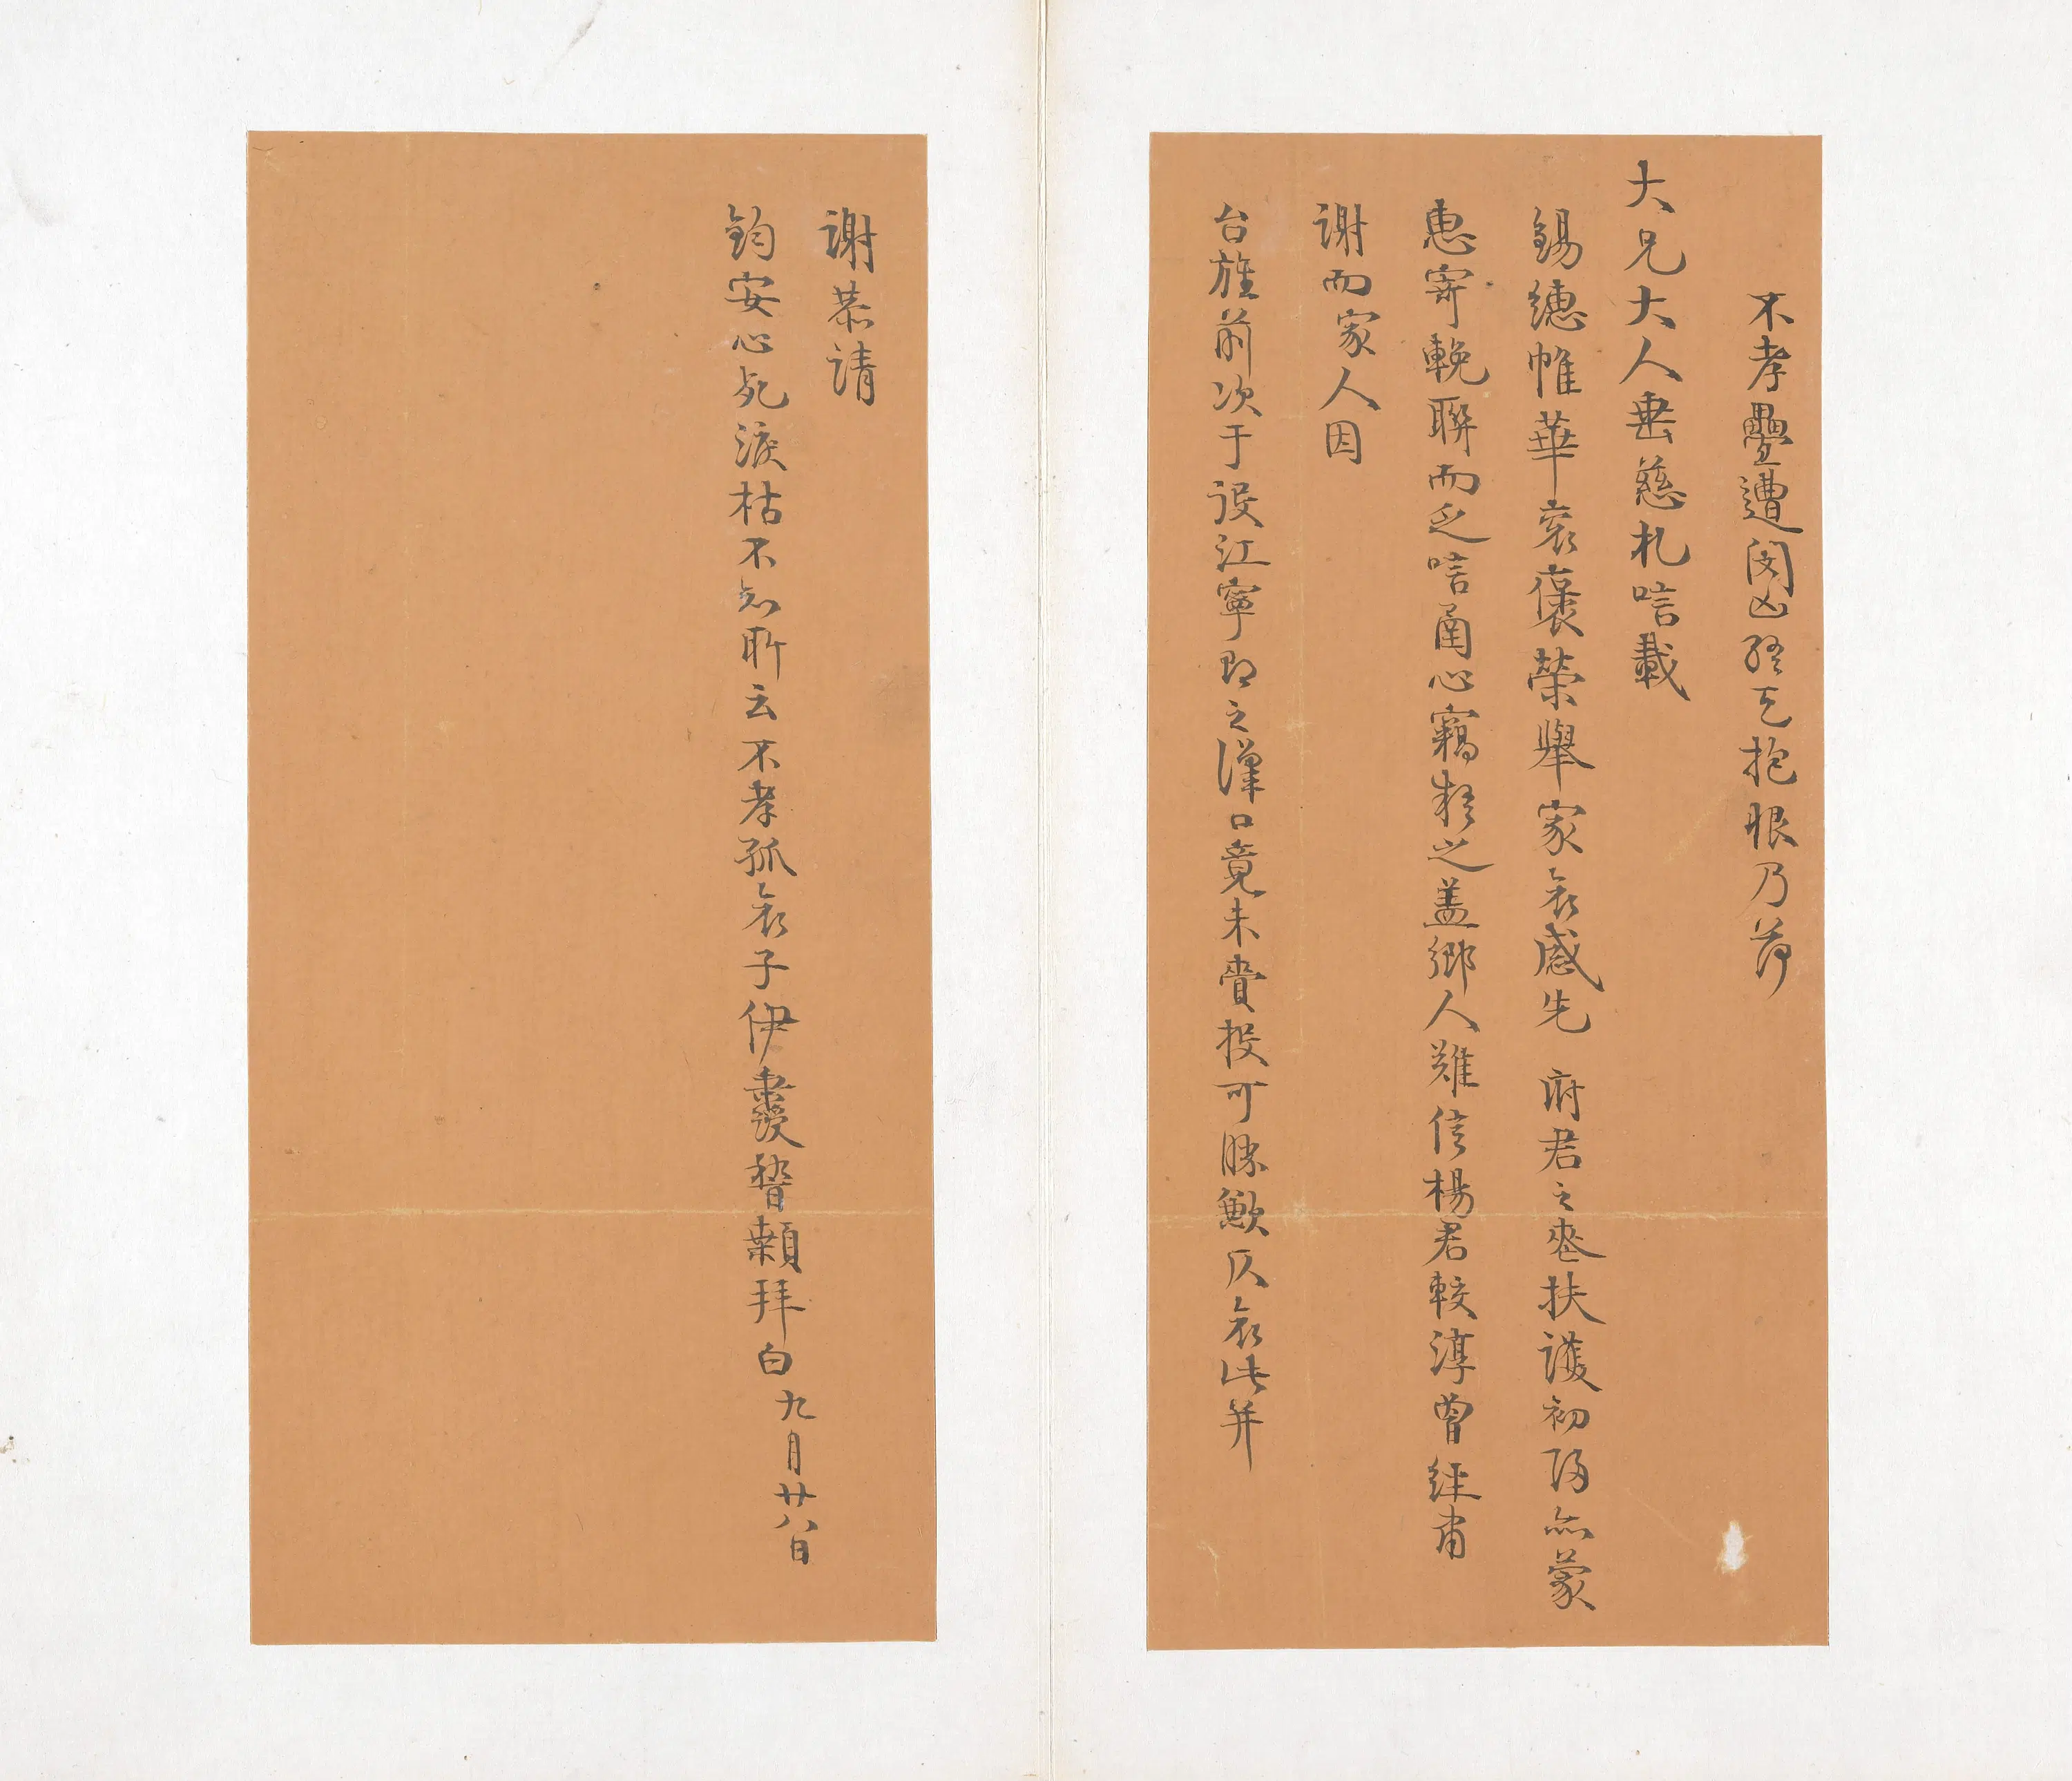 不孝疊遭閔凶終天抱恨乃荷
大兄大人垂慈札唁載
錫繐帷華袞褒榮舉家哀感先 府君之喪扶護初歸亦蒙
惠寄輓聯而乏唁函心竊疑之蓋鄉人難信楊君較淳曾經肅
謝而家人因
台旌前次于役江寧即之漢口竟未賫投可勝歉仄哀此并
謝恭請
鈞安心死淚枯不知所云不孝孤哀子伊 稽顙拜白九月廿八日